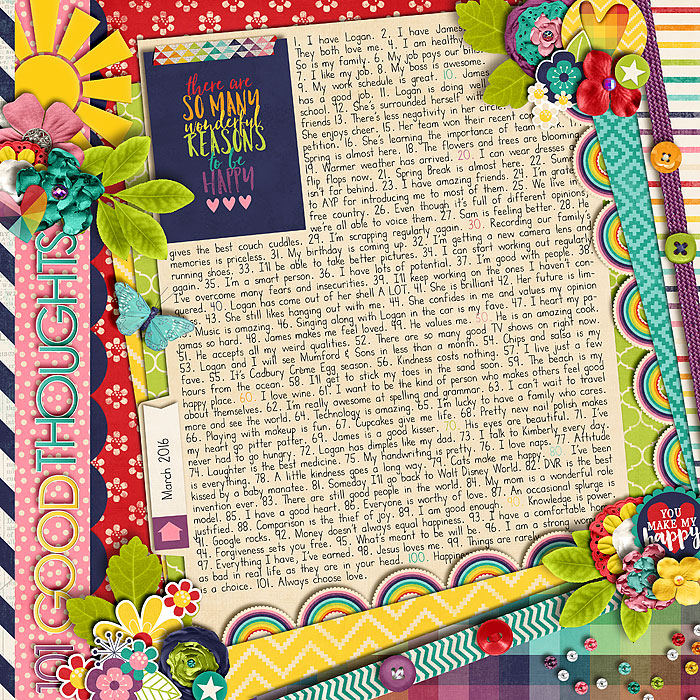 there are
SO MANY
wonderful
REASONS
to be
HAPPY
1. I have Logan. 2. I have James
They both love me. 4. I am healthy
So is my family. 6. My job pays our bills
7. I like my job. 8. My boss is awesome.
9. My work schedule is great. 10. James
has a good job. 11. Logan is doing well
school. 12. She's surrounded herself with
friends 13. There's less negativity in her circle.
She enjoys cheer. 15. Her team won their recent com
petition. 16. She's learning the importance of team
Spring is almost here. 18. The flowers and trees are blooming.
19. Warmer weather has arrived. 20. I can wear dresses
flip flops now. 21. Spring Break is almost here. 22. Summer
isn't far behind. 23. I have amazing friends. 24. I'm grate
to AYP for introducing me to most of them. 25. We live in
free country. 26. Even though it's full of different opinions,
we're all able to voice them. 27. Sam is feeling better. 28. He
gives the best couch cuddles. 29. I'm scrapping regularly again. 30. Recording our family's
memories is priceless. 31. My birthday is coming up. 32. I'm getting a new camera lens and
running shoes. 33. I'll be able to take better pictures. 34. I can start working out regularly
again. 35. I'm a smart person. 36. I have lots of potential. 37. I'm good with people. 38.
I've overcome many fears and insecurities. 39. I'll keep working on the ones I haven't con
quered. 40. Logan has come out of her shell A LOT. 41. She's brilliant 42. Her future is lim-
43. She still likes hanging out with me. 44. She confides in me and values my opinion
Music is amazing. 46. Singing along with Logan in the car is my fave. 47. I heart my pa-
jamas so hard. 48. James makes me feel loved. 49. He values me. 50. He is an amazing cook.
51. He accepts all my weird qualities. 52. There are so many good TV shows on right now.
53. Logan and I will see Mumford & Sons in less than a month. 54. Chips and salsa is my
fave. 55. It's Cadbury Crème Egg season. 56. Kindness costs nothing. 57. I live just a few
hours from the ocean. 58. I'll get to stick my toes in the sand soon. 59. The beach is my
happy place. 60. I love wine. 61. I want to be the kind of person who makes others feel good
about themselves. 62. I'm really awesome at spelling and grammar. 63. I can't wait to travel
more and see the world. 64. Technology is amazing. 65. I'm lucky to have a family who cares.
66. Playing with makeup is fun. 67. Cupcakes give me life. 68. Pretty new nail polish makes
my heart go pitter patter. 69. James is a good kisser. 70. His eyes are beautiful. 71. I've
never had to go hungry. 72. Logan has dimples like my dad. 73. I talk to Kimberly every day.
74. Laughter is the best medicine. 75. My handwriting is pretty. 76. I love naps. 77. Attitude
is everything. 78. A little kindness goes a long way. 79. Cats make me happy. 80. I've been
kissed by a baby manatee. 81. Someday, I'll go back to Walt Disney World. 82. DVR is the best
invention ever. 83. There are still good people in the world. 84. My mom is a wonderful role
model. 85. I have a good heart. 86. Everyone is worthy of love. 87. An occasional splurge is
justified. 88. Comparison is the thief of joy. 89. I am good enough. Knowledge is power.
91. Google rocks. 92. Money doesn't always equal happiness. 93. I have a comfortable home
94. Forgiveness sets you free. 95. What's meant to be will be. 96. I am a strong
97. Everything I have, I've earned. 98. Jesus loves me. 99. Things are rarely
as bad in real life as they are in your head. 100. Happiness
is a choice. 101. Always choose love.
March 2016
101 GOOD THOUGHTS
YOU
MAKE MY
happy